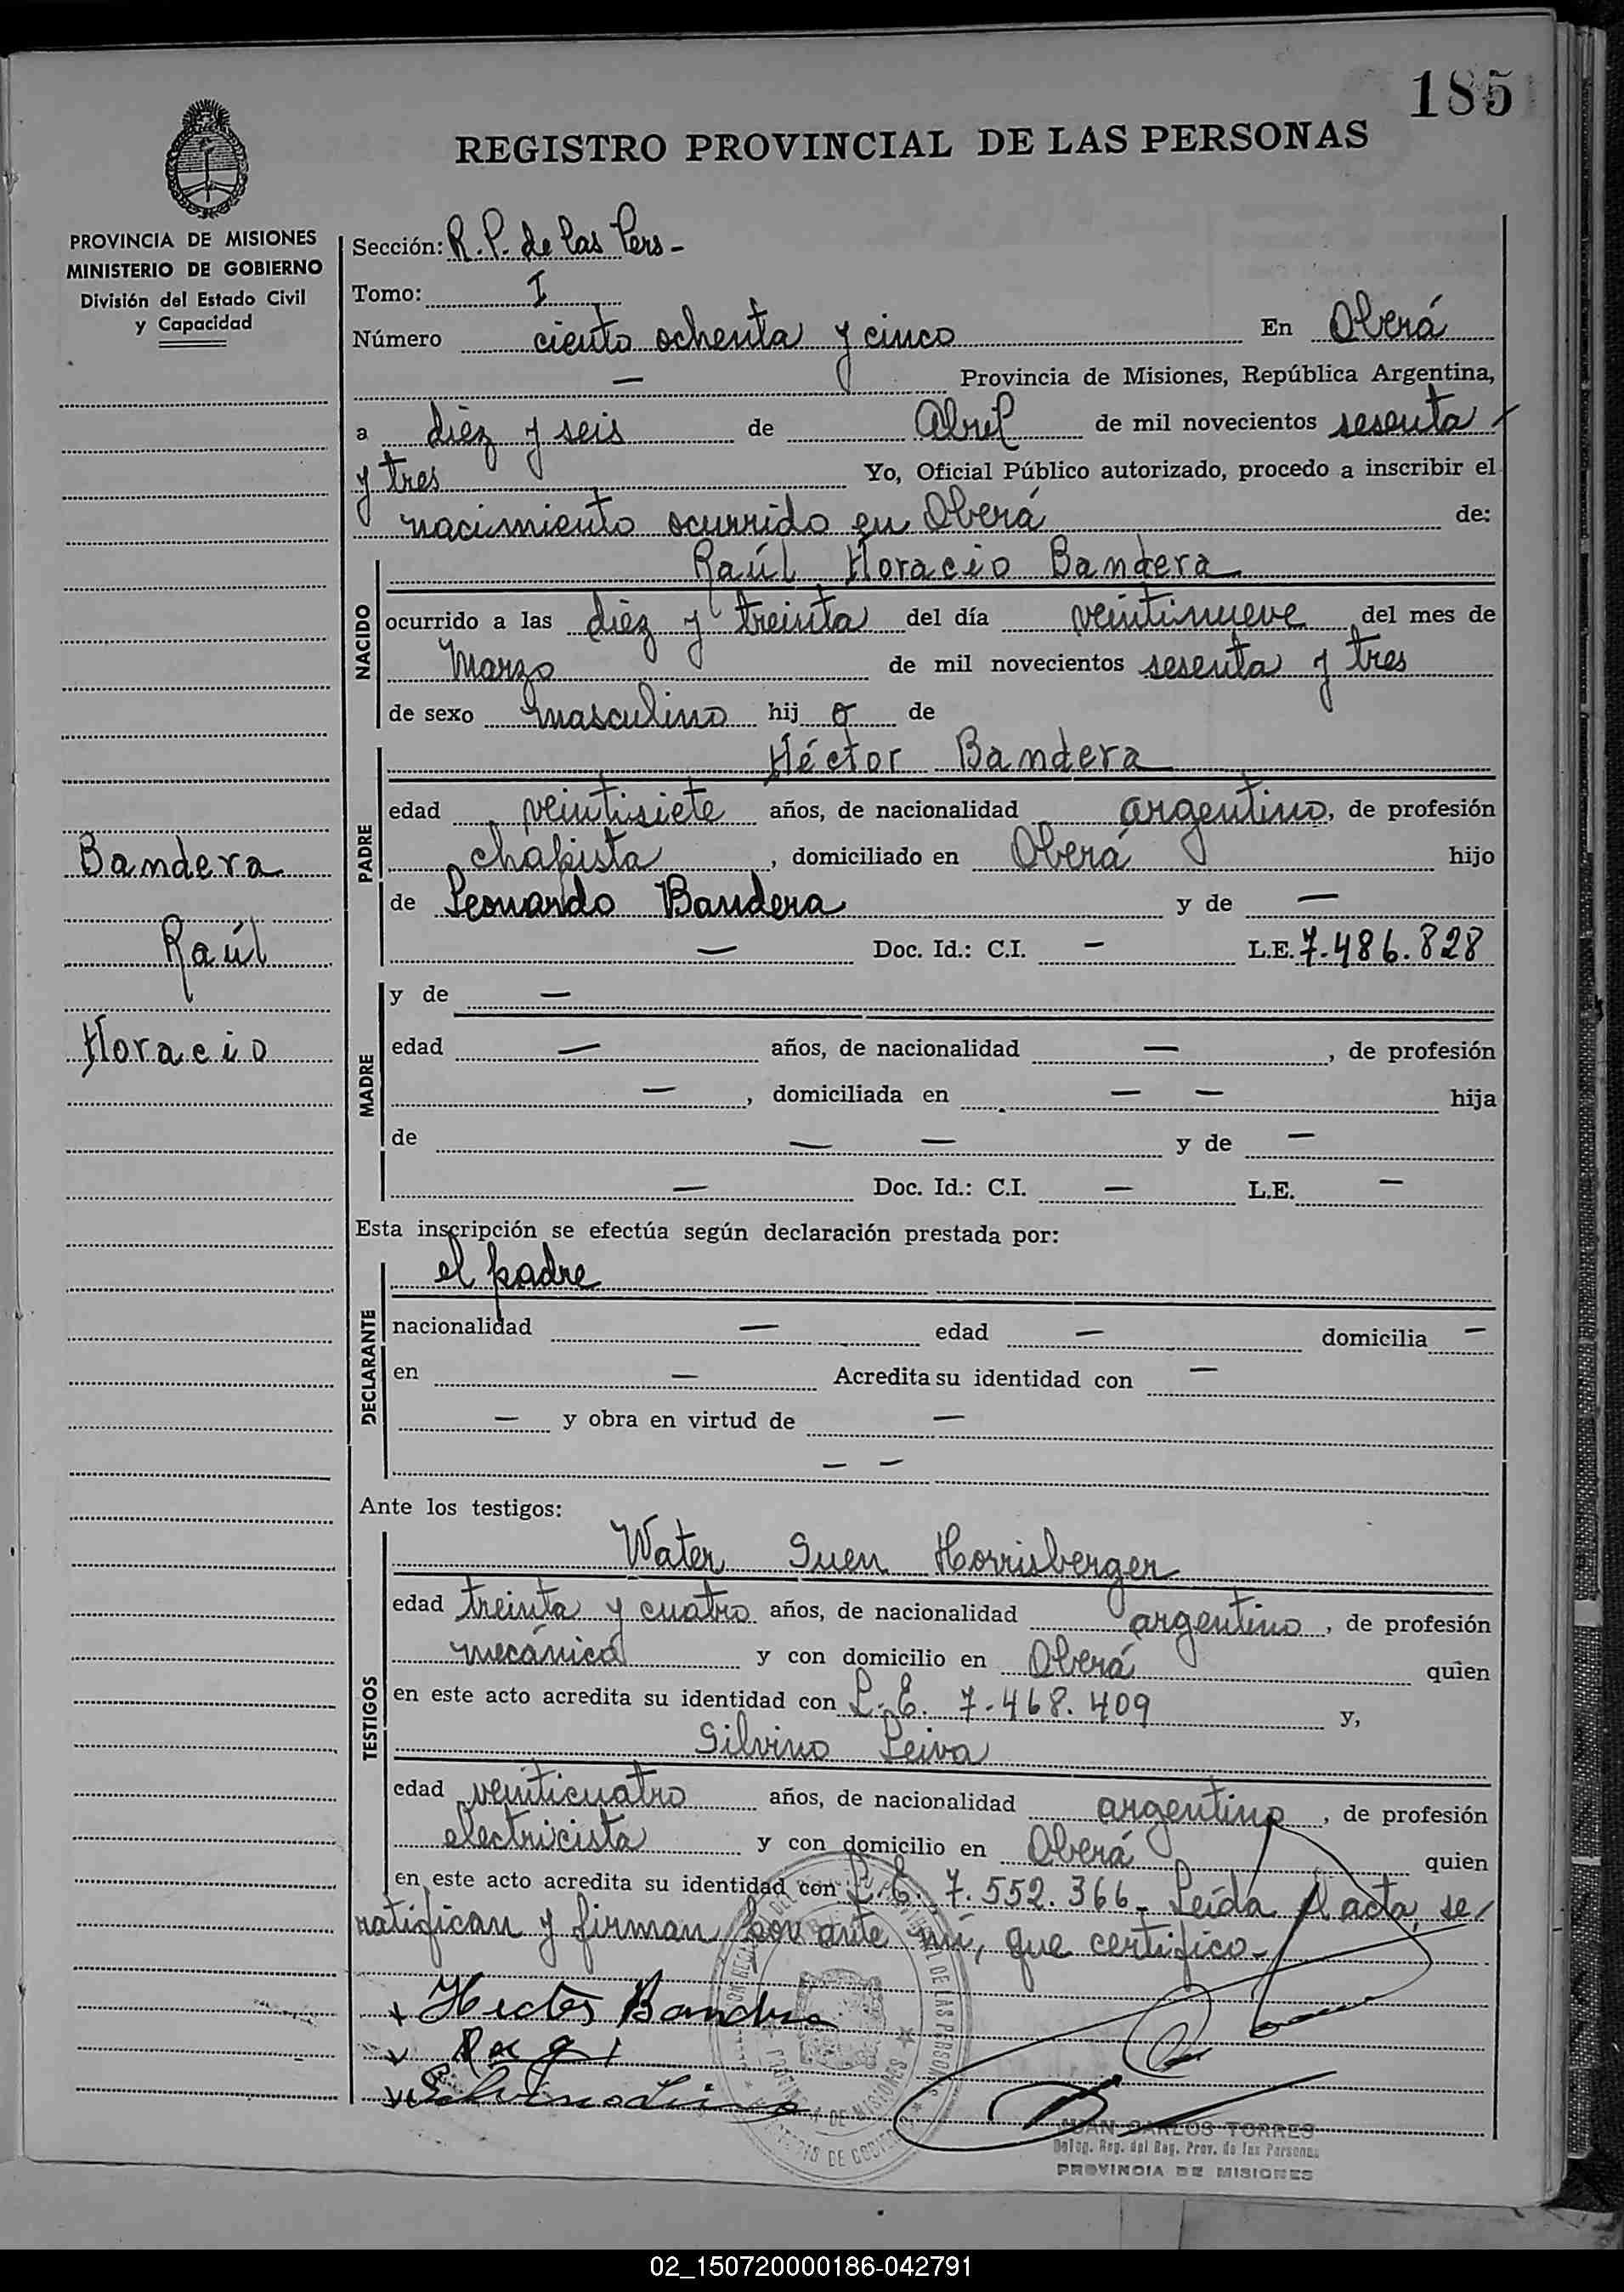 185
REGISTRO PROVINCIAL DE LAS PERSONAS
PROVINCIA DE MISIONES
MINISTERIO DE GOBIERNO
División del Estado Civil
y Capacidad
Sección: R.P. de las Pers -
Tomo: I
Número ciento ochenta y cinco En Oberá
— Provincia de Misiones, República Argentina,
a diéz y seis de Abril de mil novecientos sesenta
y tres Yo, Oficial Público autorizado, procedo a inscribir el
nacimiento ocurrido en Oberá de:
NACIDO
Raúl Horacio Bandera
ocurrido a las diéz y treinta del día veintinueve del mes de
Marzo de mil novecientos sesenta y tres
de sexo masculino hij o de
PADRE
Héctor Bandera
edad veintisiete años, de nacionalidad argentino, de profesión
chapista, domiciliado en Oberá hijo
de Leonardo Bandera y de —
— Doc. Id.: C.I. — L.E. 7.486.828
Bandera
Raúl
Horacio
MADRE
y de —
edad — años, de nacionalidad —, de profesión
—, domiciliada en — — hija
de — — y de —
— Doc. Id.: C.I. — L.E. —
Esta inscripción se efectúa según declaración prestada por:
DECLARANTE
el padre
nacionalidad — edad — domicilia —
en — Acredita su identidad con —
— y obra en virtud de —
— —
Ante los testigos:
TESTIGOS
Water Suen Horrisberger
edad treinta y cuatro años, de nacionalidad argentino, de profesión
mecánico y con domicilio en Oberá quien
en este acto acredita su identidad con L.E. 7.468.409 y,
Silvino Leiva
edad veinticuatro años, de nacionalidad argentino, de profesión
electricista y con domicilio en Oberá quien
en este acto acredita su identidad con L.E. 7.552.366 - Leída el acta, se
ratifican y firman por ante mí, que certifico -
Hector Bandera
JUAN CARLOS TORRES
Deleg. Reg. del Reg. Prov. de las Personas
PROVINCIA DE MISIONES
02_150720000186-042791